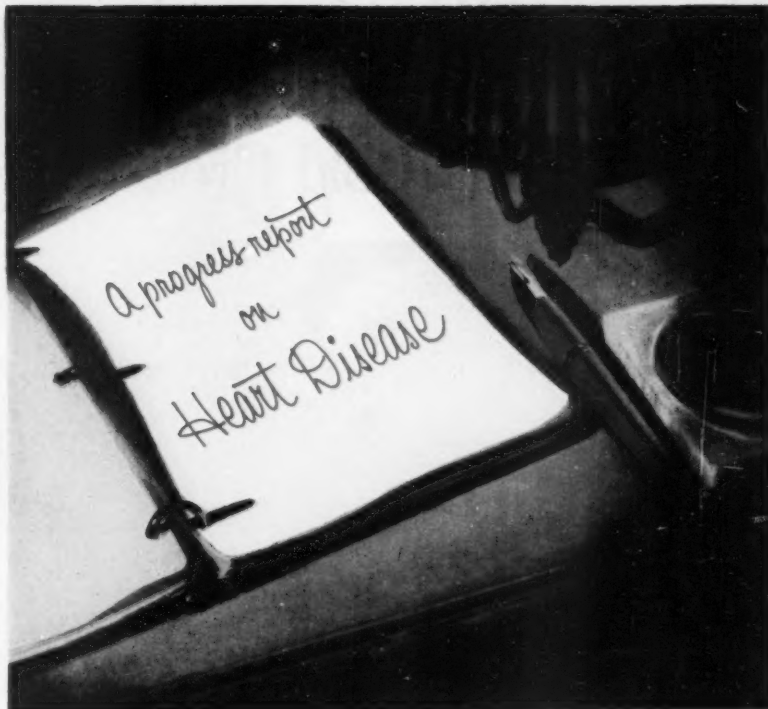 A progress report
on
Heart Disease